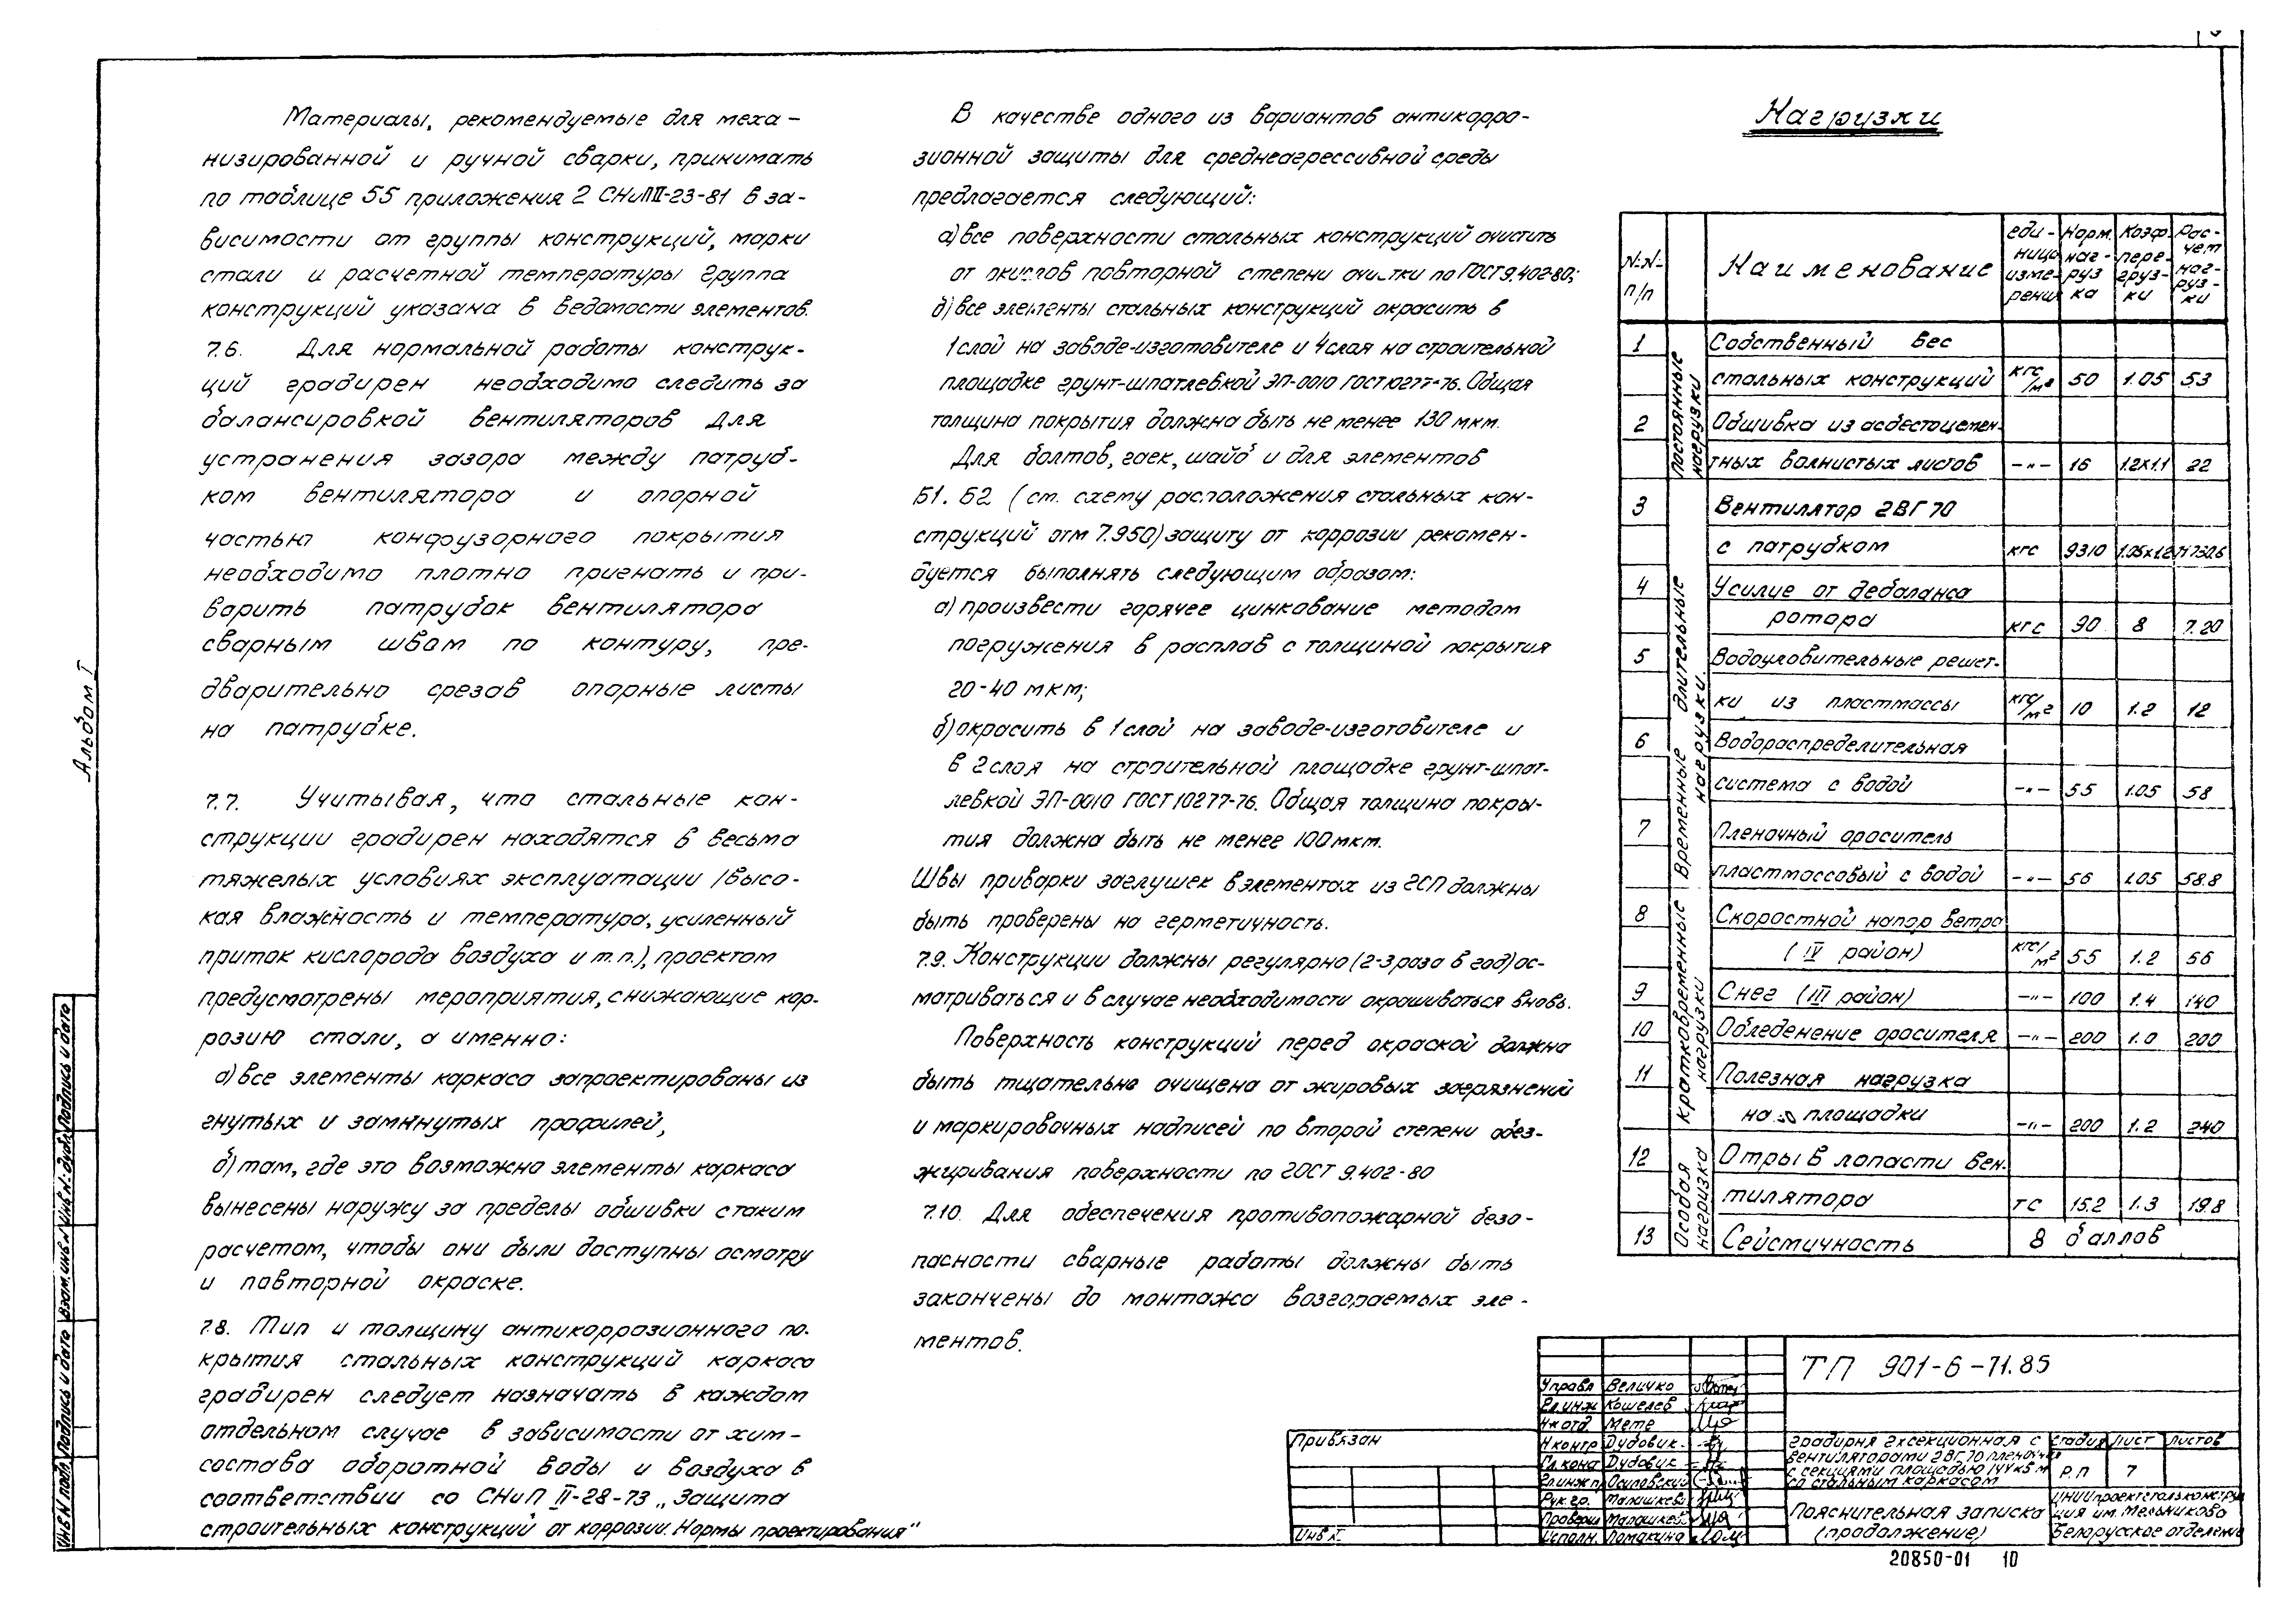 Материалы, рекомендуемые для меха-
низированной и ручной сварки, принимать
по таблице 55 приложения 2 СНиПII-23-81 в за-
висимости от группы конструкций, марки
стали и расчетной температуры группа
конструкций указана в ведомости элементов.
7.6. Для нормальной работы конструк-
ций градирен необходимо следить за
балансировкой вентиляторов Для
устранения зазора между патруб-
ком вентилятора и опорной
частью конфузорного покрытия
необходимо плотно пригнать и при-
варить патрубок вентилятора
сварным швом по контуру, пре-
дварительно срезав опорные листы
на патрубке.
7.7. Учитывая, что стальные кон-
струкции градирен находятся в весьма
тяжелых условиях эксплуатации /высо-
кая влажность и температура, усиленный
приток кислорода воздуха и т.п.), проектом
предусмотрены мероприятия, снижающие кор-
розию стали, а именно:
а) все элементы каркаса запроектированы из
гнутых и замкнутых профилей,
б) там, где это возможно элементы каркаса
вынесены наружу за пределы обшивки с таким
расчетом, чтобы они были доступны осмотру
и повторной окраске.
7.8. Тип и толщину антикоррозионного по-
крытия стальных конструкций каркаса
градирен следует назначать в каждом
отдельном случае в зависимости от хим-
состава оборотной воды и воздуха в
соответствии со СНиП II-28-73 „Защита
строительных конструкций от коррозии. Нормы проектирования"
В качестве одного из вариантов антикорро-
зионной защиты для среднеагрессивной среды
предлагается следующий:
а) все поверхности стальных конструкций очистить
от окислов повторной степени очистки по ГОСТ 9.402-80;
б) все элементы стальных конструкций окрасить в
1 слой на заводе-изготовителе и 4 слоя на строительной
площадке грунт-шпатлевкой ЭП-0010 ГОСТ 10277-76. Общая
толщина покрытия должна быть не менее 130 мкм.
Для болтов, гаек, шайб и для элементов
Б1. Б2 (см. схему расположения стальных кон-
струкций отм 7.950) защиту от коррозии рекомен-
дуется выполнять следующим образом:
а) произвести горячее цинкование методом
погружения в расплав с толщиной покрытия
20-40 мкм;
б) окрасить в 1 слой на заводе-изготовителе и
в 2 слоя на строительной площадке грунт-шпат-
левкой ЭП-0010 ГОСТ 10277-76. Общая толщина покры-
тия должна быть не менее 100 мкм.
Швы приварки заглушек в элементах из ГСП должны
быть проверены на герметичность.
7.9. Конструкции должны регулярно (2-3 раза в год) ос-
матриваться и в случае необходимости окрашиваться вновь.
Поверхность конструкций перед окраской должна
быть тщательно очищена от жировых загрязнений
и маркировочных надписей по второй степени обез-
жиривания поверхности по ГОСТ 9.402-80
7.10. Для обеспечения противопожарной безо-
пасности сварные работы должны быть
закончены до монтажа возгораемых эле-
ментов.
Нагрузки
№№ п/п Наименование еди-ница изме-рения Норм. наг-руз ка Коэф. пере-груз-ки Рас-чет наг-руз-ки
Постоянные нагрузки
1 Собственный вес
стальных конструкций кгс/м² 50 1.05 53
2 Обшивка из асбестоцемен-
тных волнистых листов -"- 16 1.2х1.1 22
Временные длительные нагрузки.
3 Вентилятор 2ВГ 70
с патрубком кгс 9310 1.05х1.2 11730.6
4 Усилие от дебаланса
ротора кгс 90 8 7.20
5 Водоуловительные решет-
ки из пластмассы кгс/м² 10 1.2 12
6 Водораспределительная
система с водой -"- 55 1.05 58
7 Пленочный ороситель
пластмассовый с водой -"- 56 1.05 58.8
Кратковременные нагрузки
8 Скоростной напор ветра
(IV район) кгс/м² 55 1.2 56
9 Снег (III район) -"- 100 1.4 140
10 Обледенение оросителя -"- 200 1.0 200
11 Полезная нагрузка
на площадки -"- 200 1.2 240
Особая нагрузка
12 Отрыв лопасти вен-
тилятора тс 15.2 1.3 19.8
13 Сейсмичность 8 баллов
Альбом I
Инв N подл. Подпись и дата Взам.инв.N Инв N: дубл. Подпись и дата
Привязан
Инв N.
Управл Величко
Гл.инж Кошелев
Нач отд. Мете
Н контр Дубовик
Гл.конс Дубовик
Гл.инж.пр Осиповский
Рук.гр.
Провер
Исполн. Ломакина
ТП 901-6-71.85
Градирня 2хсекционная с
вентиляторами 2ВГ 70 пленочная
с секциями площадью 144 кв м
со стальным каркасом
Стадия Лист Листов
Р.П 7
Пояснительная записка
(продолжение)
ЦНИИпроектстальконструк
ция им. Мельникова
Белорусское отделение
20850-01 10